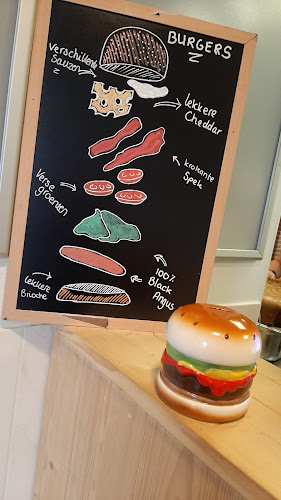 BURGERS
Verschillende
Sauzen
Lekkere
Cheddar
krokante
Spek
Verse
groenten
100%
Black
Angus
Lekkere
Brioche